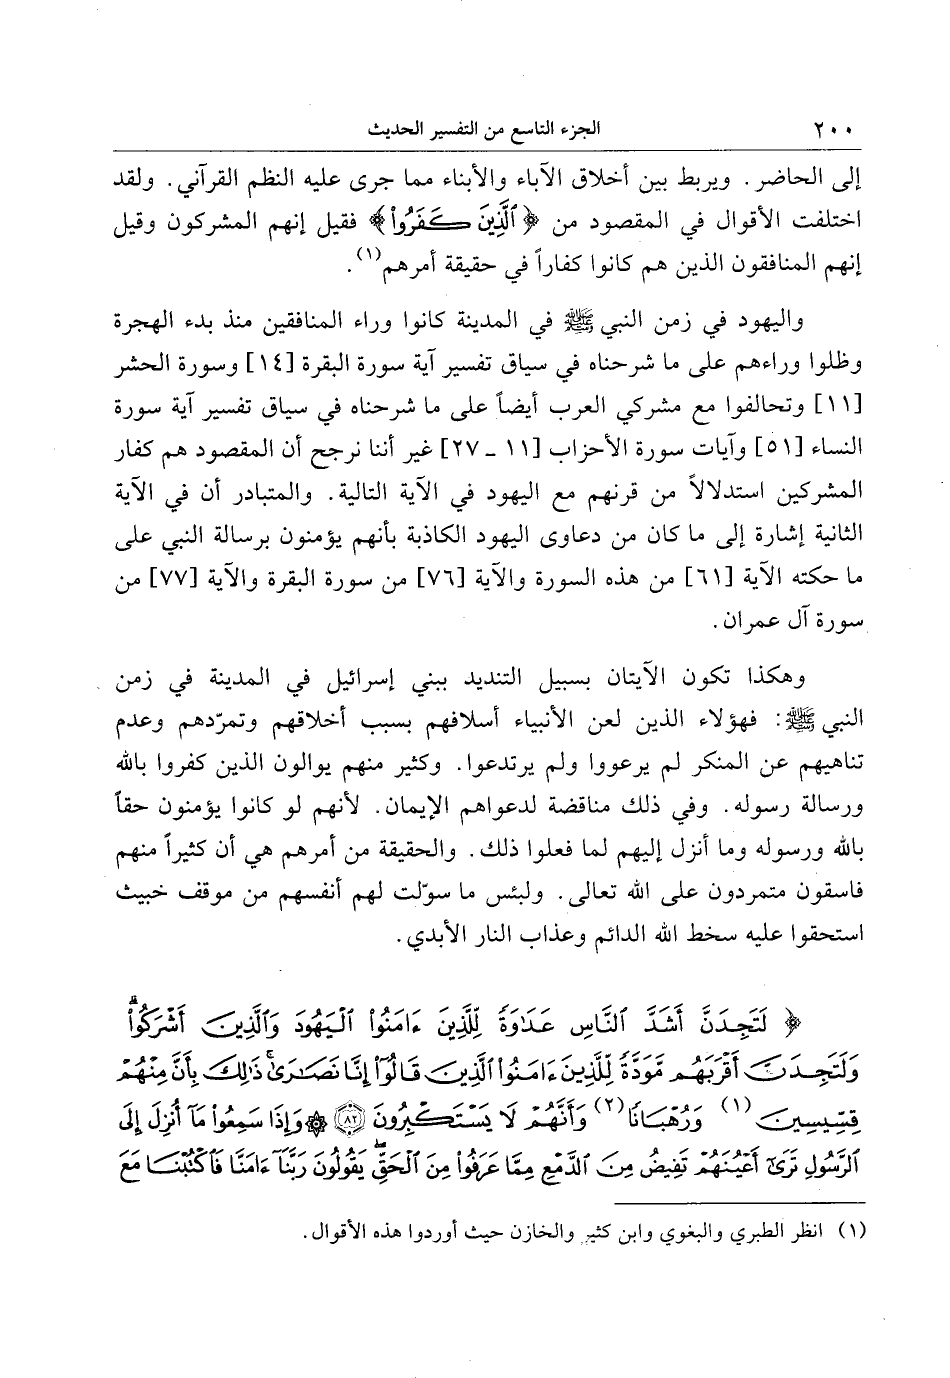 ٢٠٠ الجزء التاسع من التفسير الحديث
إلى الحاضر. ويربط بين أخلاق الآباء والأبناء مما جرى عليه النظم القرآني. ولقد
اختلفت الأقوال في المقصود من ﴿ٱلَّذِينَ كَفَرُوا۟﴾ فقيل إنهم المشركون وقيل
إنهم المنافقون الذين هم كانوا كفاراً في حقيقة أمرهم(١).
واليهود في زمن النبي ﷺ في المدينة كانوا وراء المنافقين منذ بدء الهجرة
وظلوا وراءهم على ما شرحناه في سياق تفسير آية سورة البقرة [١٤] وسورة الحشر
[١١] وتحالفوا مع مشركي العرب أيضاً على ما شرحناه في سياق تفسير آية سورة
النساء [٥١] وآيات سورة الأحزاب [١١ ـ ٢٧] غير أننا نرجح أن المقصود هم كفار
المشركين استدلالاً من قرنهم مع اليهود في الآية التالية. والمتبادر أن في الآية
الثانية إشارة إلى ما كان من دعاوى اليهود الكاذبة بأنهم يؤمنون برسالة النبي على
ما حكته الآية [٦١] من هذه السورة والآية [٧٦] من سورة البقرة والآية [٧٧] من
سورة آل عمران.
وهكذا تكون الآيتان بسبيل التنديد ببني إسرائيل في المدينة في زمن
النبي ﷺ: فهؤلاء الذين لعن الأنبياء أسلافهم بسبب أخلاقهم وتمرّدهم وعدم
تناهيهم عن المنكر لم يرعووا ولم يرتدعوا. وكثير منهم يوالون الذين كفروا بالله
ورسالة رسوله. وفي ذلك مناقضة لدعواهم الإيمان. لأنهم لو كانوا يؤمنون حقاً
بالله ورسوله وما أنزل إليهم لما فعلوا ذلك. والحقيقة من أمرهم هي أن كثيراً منهم
فاسقون متمردون على الله تعالى. ولبئس ما سوّلت لهم أنفسهم من موقف خبيث
استحقوا عليه سخط الله الدائم وعذاب النار الأبدي.
﴿ لَتَجِدَنَّ أَشَدَّ ٱلنَّاسِ عَدَٰوَةً لِّلَّذِينَ ءَامَنُوا۟ ٱلْيَهُودَ وَٱلَّذِينَ أَشْرَكُوا۟ۖ
وَلَتَجِدَنَّ أَقْرَبَهُم مَّوَدَّةً لِّلَّذِينَ ءَامَنُوا۟ ٱلَّذِينَ قَالُوٓا۟ إِنَّا نَصَٰرَىٰۚ ذَٰلِكَ بِأَنَّ مِنْهُمْ
قِسِّيسِينَ (١) وَرُهْبَانًا (٢) وَأَنَّهُمْ لَا يَسْتَكْبِرُونَ ٨٢ ۞ وَإِذَا سَمِعُوا۟ مَآ أُنزِلَ إِلَى
ٱلرَّسُولِ تَرَىٰٓ أَعْيُنَهُمْ تَفِيضُ مِنَ ٱلدَّمْعِ مِمَّا عَرَفُوا۟ مِنَ ٱلْحَقِّۖ يَقُولُونَ رَبَّنَآ ءَامَنَّا فَٱكْتُبْنَا مَعَ
(١) انظر الطبري والبغوي وابن كثير والخازن حيث أوردوا هذه الأقوال.